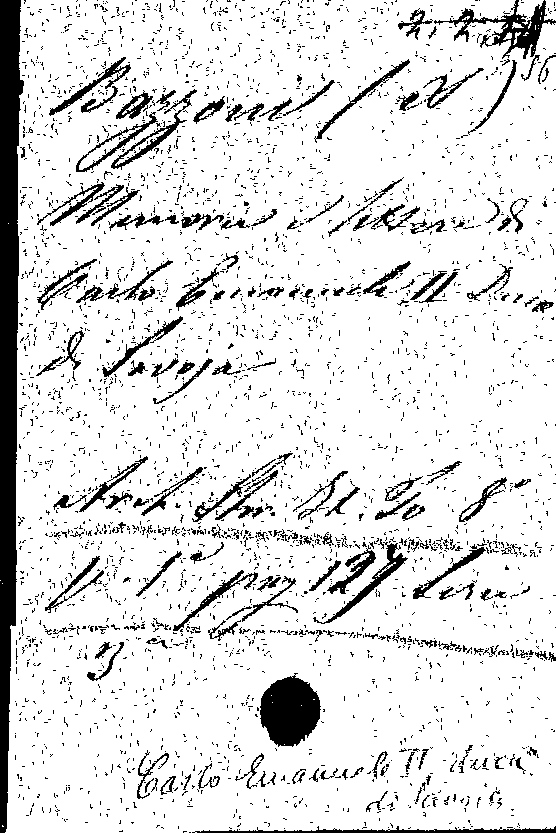 Bazzoni (A)
Memorie e lettere di
Carlo Emanuele II Duca
di Savoja
Arch. Stor. It. To 8°
V. 1a pag 127 Serie
3a
Carlo Emanuele II duca
di Savoia